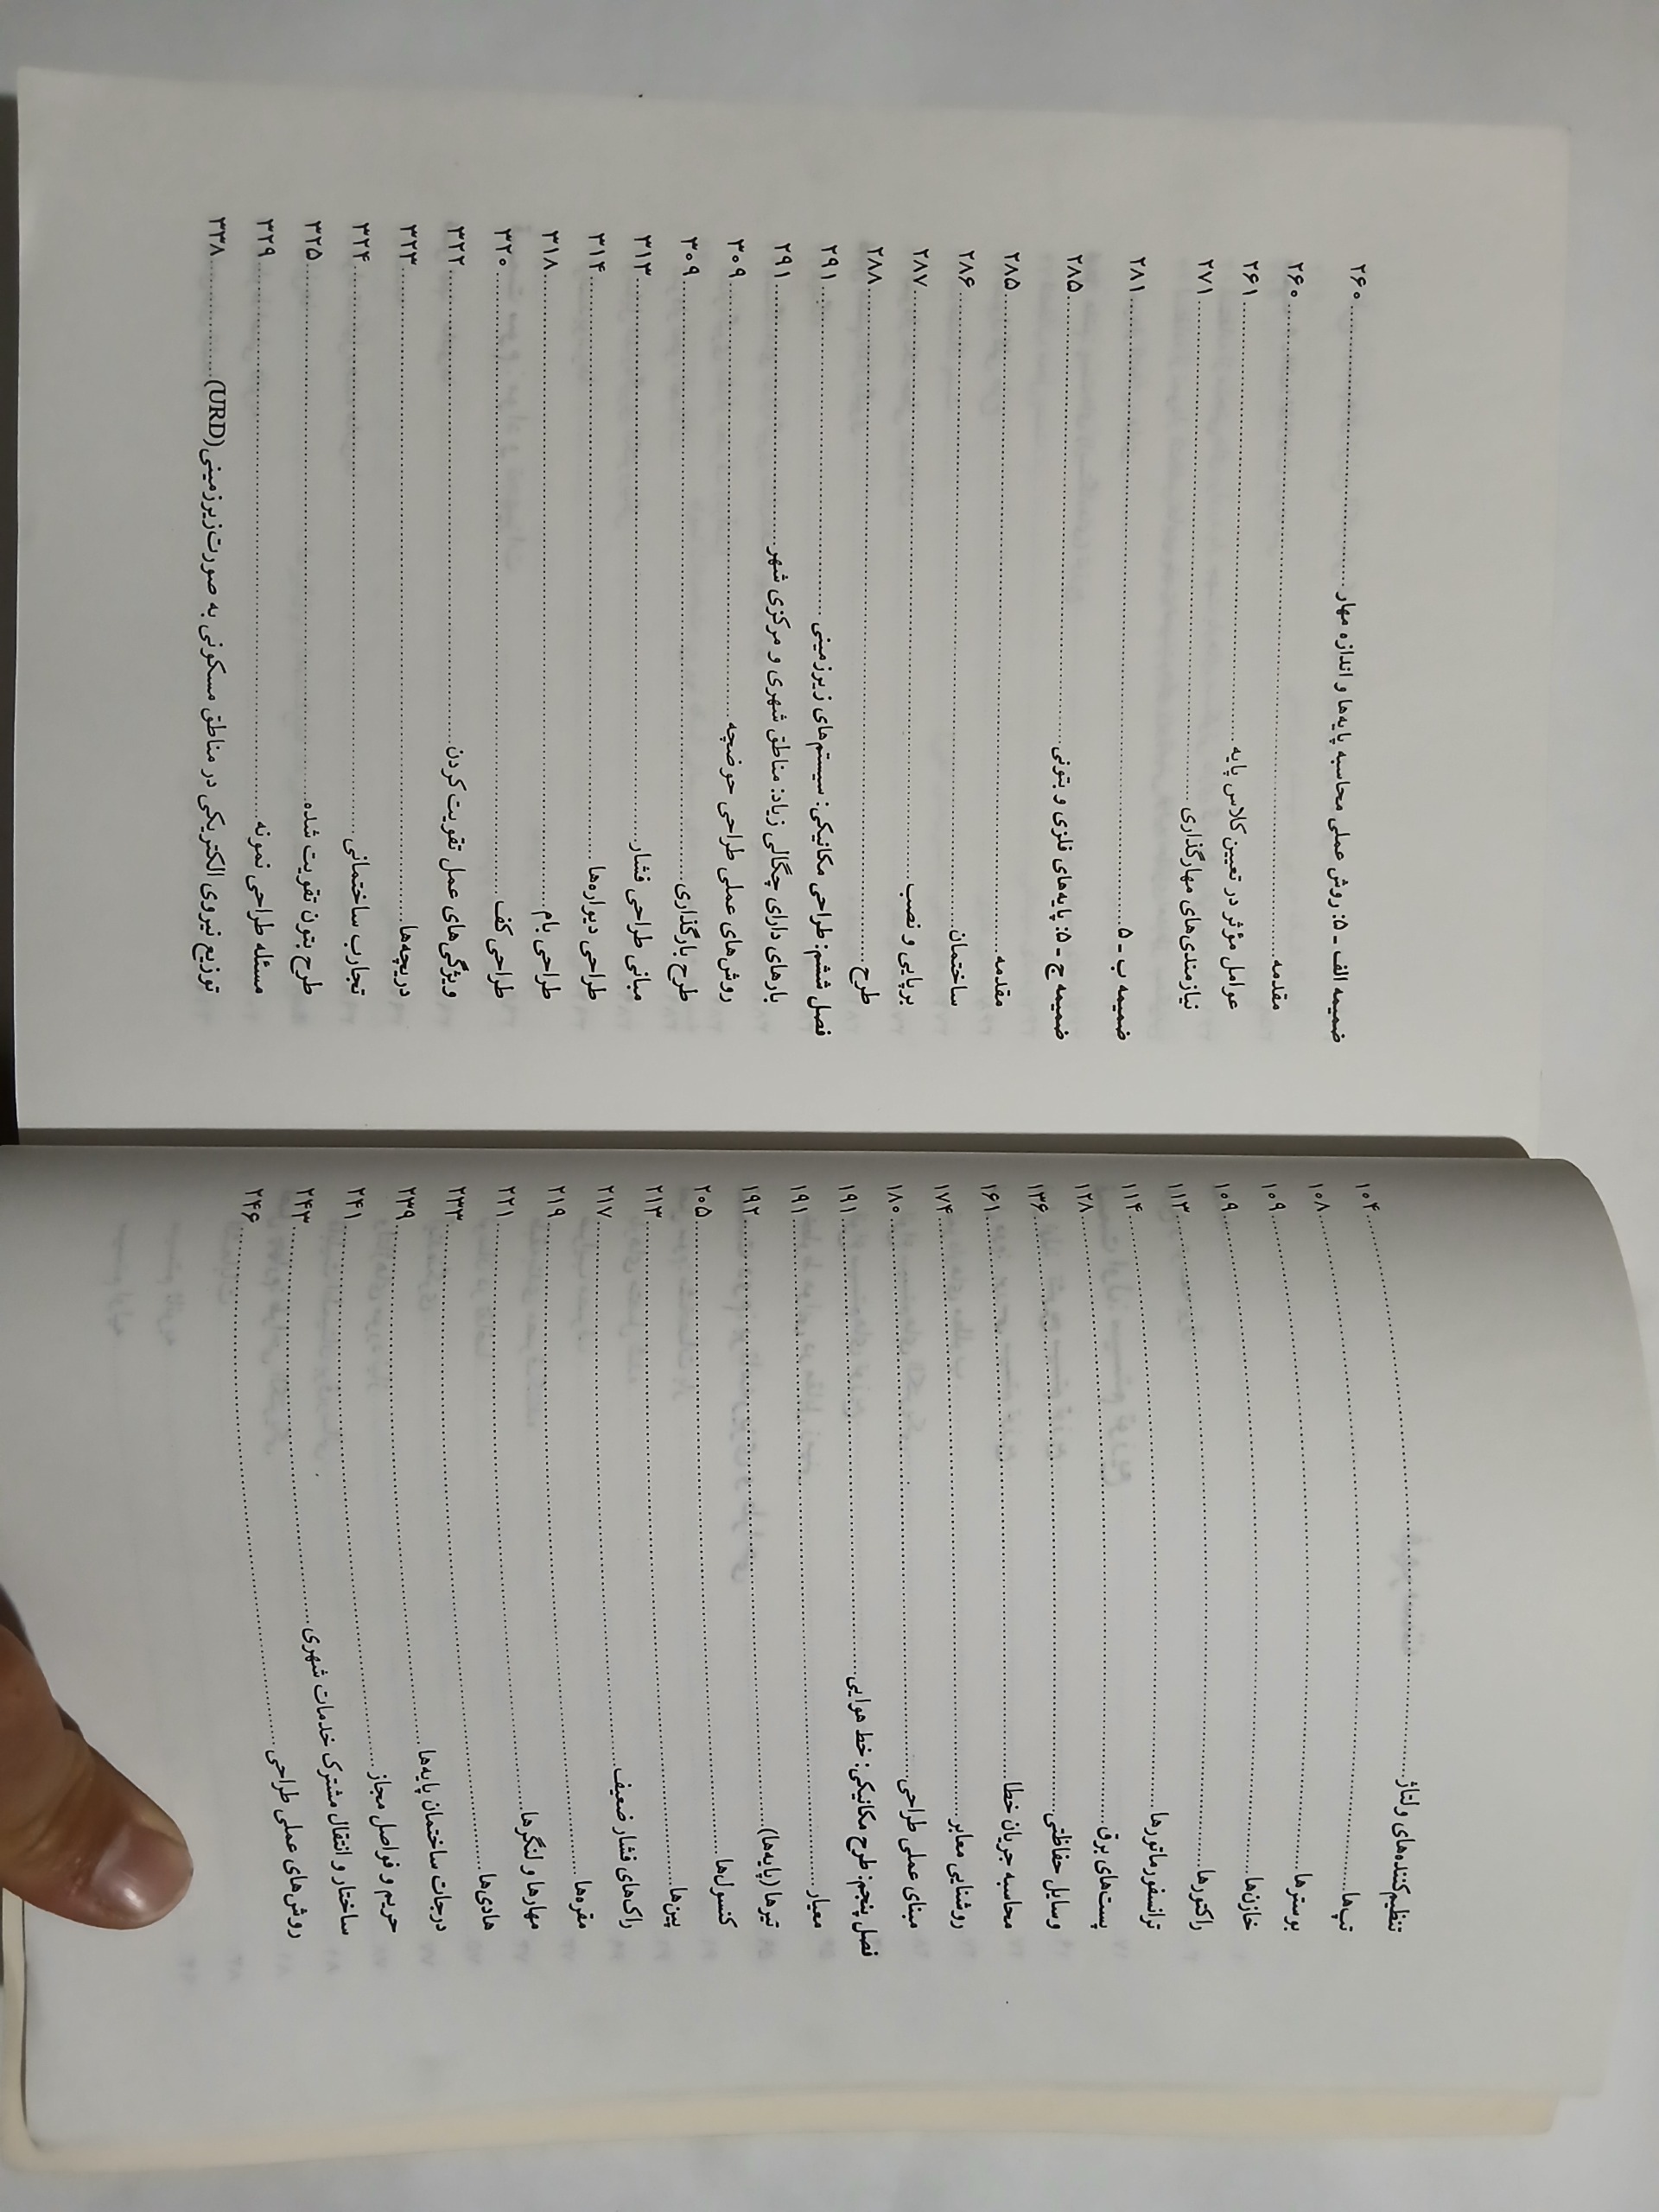 تنظیم‌کننده‌های ولتاژ ........ ۱۰۴
تپ‌ها ........ ۱۰۸
بوسترها ........ ۱۰۹
خازن‌ها ........ ۱۰۹
راکتورها ........ ۱۱۳
ترانسفورماتورها ........ ۱۱۴
پست‌های برق ........ ۱۲۸
وسایل حفاظتی ........ ۱۳۶
محاسبه جریان خطا ........ ۱۶۱
روشنایی معابر ........ ۱۷۴
مبنای عملی طراحی ........ ۱۸۰
فصل پنجم: طرح مکانیکی: خط هوایی ........ ۱۹۱
معیار ........ ۱۹۱
تیرها (پایه‌ها) ........ ۱۹۲
کنسول‌ها ........ ۲۰۵
پین‌ها ........ ۲۱۳
راک‌های فشار ضعیف ........ ۲۱۷
مقره‌ها ........ ۲۱۹
مهارها و لنگرها ........ ۲۲۱
هادی‌ها ........ ۲۳۳
درجات ساختمان پایه‌ها ........ ۲۳۹
حریم و فواصل مجاز ........ ۲۴۱
ساختار و انتقال مشترک خدمات شهری ........ ۲۴۳
روش‌های عملی طراحی ........ ۲۴۶
ضمیمه الف ـ ۵: روش عملی محاسبه پایه‌ها و اندازه مهار ........ ۲۶۰
مقدمه ........ ۲۶۰
عوامل مؤثر در تعیین کلاس پایه ........ ۲۶۱
نیازمندی‌های مهارگذاری ........ ۲۷۱
ضمیمه ب ـ ۵ ........ ۲۸۱
ضمیمه ج ـ ۵: پایه‌های فلزی و بتونی ........ ۲۸۵
مقدمه ........ ۲۸۵
ساختمان ........ ۲۸۶
برپایی و نصب ........ ۲۸۷
طرح ........ ۲۸۸
فصل ششم: طراحی مکانیکی: سیستم‌های زیرزمینی ........ ۲۹۱
بارهای دارای چگالی زیاد: مناطق شهری و مرکزی شهر ........ ۲۹۱
روش‌های عملی طراحی حوضچه ........ ۳۰۹
طرح بارگذاری ........ ۳۰۹
مبانی طراحی فشار ........ ۳۱۳
طراحی دیواره‌ها ........ ۳۱۴
طراحی بام ........ ۳۱۸
طراحی کف ........ ۳۲۰
ویژگی‌های عمل تقویت کردن ........ ۳۲۲
دریچه‌ها ........ ۳۲۳
تجارب ساختمانی ........ ۳۲۴
طرح بتون تقویت شده ........ ۳۲۵
مسئله طراحی نمونه ........ ۳۲۹
توزیع نیروی الکتریکی در مناطق مسکونی به صورت زیرزمینی (URD) ........ ۳۳۸